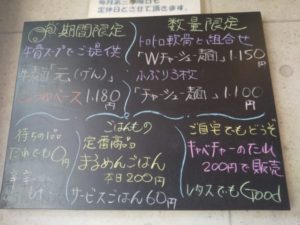 毎月第三季曜日も
定休日とさせて頂きます。
期間限定
牛骨スープでご提供
牛麺「元」(げん)
ベース 1.180円
数量限定
トロトロ軟骨と組合せ
「Wチャーシュー麺」1.150円
「チャーシュー麺」1.100円
待ちの
0円
ごはんもの
定番商品
まるめんごはん
本日200円
サービスごはん60円
ご自宅でもどうぞ
キャベチャーのたれ
200円で販売
レタスでもGood